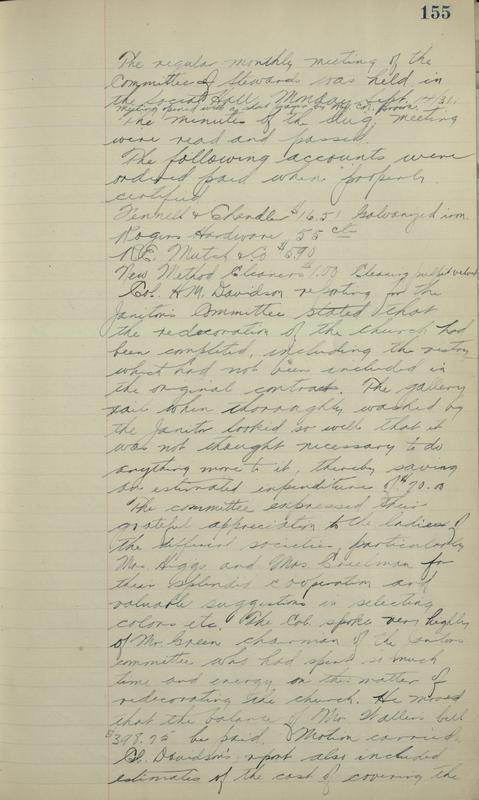 155
The regular monthly meeting of the
Committee of Stewards was held in
the Social Hall, Monday Sept. 14/31.
meeting opened with by Col. Brown.
The minutes of the Aug. meeting
were read and passed.
The following accounts were
ordered paid when properly
certified
Fennell & Chandle $16.51 Galvanized iron
Rogers Hardware 55 cts
R.E. Mutch & Co $5.90
New Method Cleaners $1.00 Cleaning pulpit
Col. H.M. Davidson reporting for the
Janitors Committee stated that
the redecoration of the church had
been completed, including the vestry
which had not been included in
the original contract. The gallery
rail when thoroughly washed by
the Janitor looked so well that it
was not thought necessary to do
anything more to it, thereby saving
an estimated expenditure of $70.00
The committee expressed their
grateful appreciation to the ladies of
the different societies, particularly
Mrs. Higgs and Mrs. Creelman for
their splendid cooperation and
valuable suggestions in selecting
colors etc. The Col. spoke very highly
of Mr. Green chairman of the
committee who had spent so much
time and energy on the matter of
redecorating the church. He moved
that the balance of Mr. Wallers bill
$398.75 be paid. Motion carried.
Col. Davidson's report also included
estimates of the cost of covering the